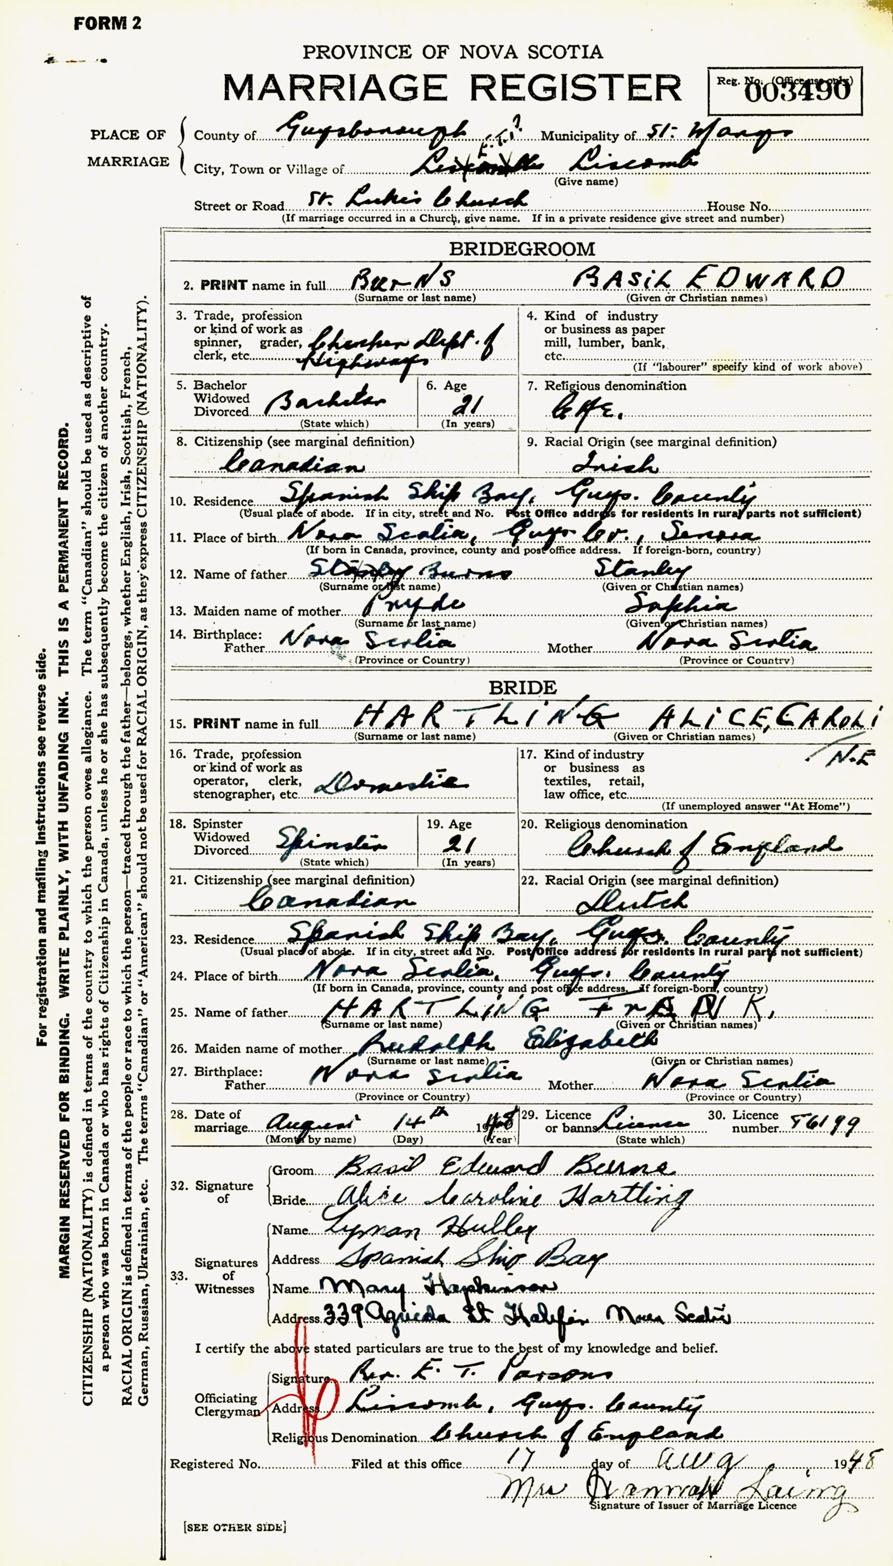 FORM 2
PROVINCE OF NOVA SCOTIA
MARRIAGE REGISTER
Reg. No. (Office use only)
003490
PLACE OF MARRIAGE
County of Guysborough Municipality of St. Marys
City, Town or Village of Liscomb
(Give name)
Street or Road St. Lukes Church House No.
(If marriage occurred in a Church, give name. If in a private residence give street and number)
BRIDEGROOM
2. PRINT name in full BurNS BASiL EDWARD
(Surname or last name) (Given or Christian names)
3. Trade, profession or kind of work as spinner, grader, clerk, etc. Checker Dept. of Highways
4. Kind of industry or business as paper mill, lumber, bank, etc.
(If "labourer" specify kind of work above)
5. Bachelor Widowed Divorced Bachelor
(State which)
6. Age 21
(In years)
7. Religious denomination
8. Citizenship (see marginal definition)
Canadian
9. Racial Origin (see marginal definition)
Irish
10. Residence Spanish Ship Bay, Guys. County
(Usual place of abode. If in city, street and No. Post Office address for residents in rural parts not sufficient)
11. Place of birth Nova Scotia, Guys Co., Sonora
(If born in Canada, province, county and post office address. If foreign-born, country)
12. Name of father Burns Stanley
(Surname or last name) (Given or Christian names)
13. Maiden name of mother Pryde Sophia
(Surname or last name) (Given or Christian names)
14. Birthplace: Father Nova Scotia Mother Nova Scotia
(Province or Country) (Province or Country)
BRIDE
15. PRINT name in full HARTLiNG ALiCE, CAROLi
NE
(Surname or last name) (Given or Christian names)
16. Trade, profession or kind of work as operator, clerk, stenographer, etc. Domestic
17. Kind of industry or business as textiles, retail, law office, etc.
(If unemployed answer "At Home")
18. Spinster Widowed Divorced Spinster
(State which)
19. Age 21
(In years)
20. Religious denomination
Church of England
21. Citizenship (see marginal definition)
Canadian
22. Racial Origin (see marginal definition)
Dutch
23. Residence Spanish Ship Bay, Guys. County
(Usual place of abode. If in city, street and No. Post Office address for residents in rural parts not sufficient)
24. Place of birth Nova Scotia, Guys. County
(If born in Canada, province, county and post office address. If foreign-born, country)
25. Name of father HARTLiNG FrANK.
(Surname or last name) (Given or Christian names)
26. Maiden name of mother Rudolph Elizabeth
(Surname or last name) (Given or Christian names)
27. Birthplace: Father Nova Scotia Mother Nova Scotia
(Province or Country) (Province or Country)
28. Date of marriage August 14th 1948
(Month by name) (Day) (Year)
29. Licence or banns Licence
(State which)
30. Licence number 56199
32. Signature of
Groom Basil Edward Burns
Bride Alice Caroline Hartling
33. Signatures of Witnesses
Name Lyman Hulley
Address Spanish Ship Bay
Name Mary Hopkinson
Address 339 Agricola St Halifax Nova Scotia
I certify the above stated particulars are true to the best of my knowledge and belief.
Officiating Clergyman
Signature Rev. E. T. Parsons
Address Liscomb, Guys. County
Religious Denomination Church of England
Registered No. Filed at this office 17 day of Aug 1948
Mrs Hannah Laing
Signature of Issuer of Marriage Licence
[SEE OTHER SIDE]
For registration and mailing instructions see reverse side.
MARGIN RESERVED FOR BINDING. WRITE PLAINLY, WITH UNFADING INK. THIS IS A PERMANENT RECORD.
CITIZENSHIP (NATIONALITY) is defined in terms of the country to which the person owes allegiance. The term "Canadian" should be used as descriptive of
a person who was born in Canada or who has rights of Citizenship in Canada, unless he or she has subsequently become the citizen of another country.
RACIAL ORIGIN is defined in terms of the people or race to which the person—traced through the father—belongs, whether English, Irish, Scottish, French,
German, Russian, Ukrainian, etc. The terms "Canadian" or "American" should not be used for RACIAL ORIGIN, as they express CITIZENSHIP (NATIONALITY).